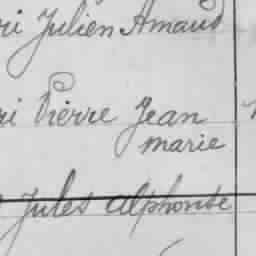 ri Julien Amand
ri Pierre Jean
marie
Jules alphonse